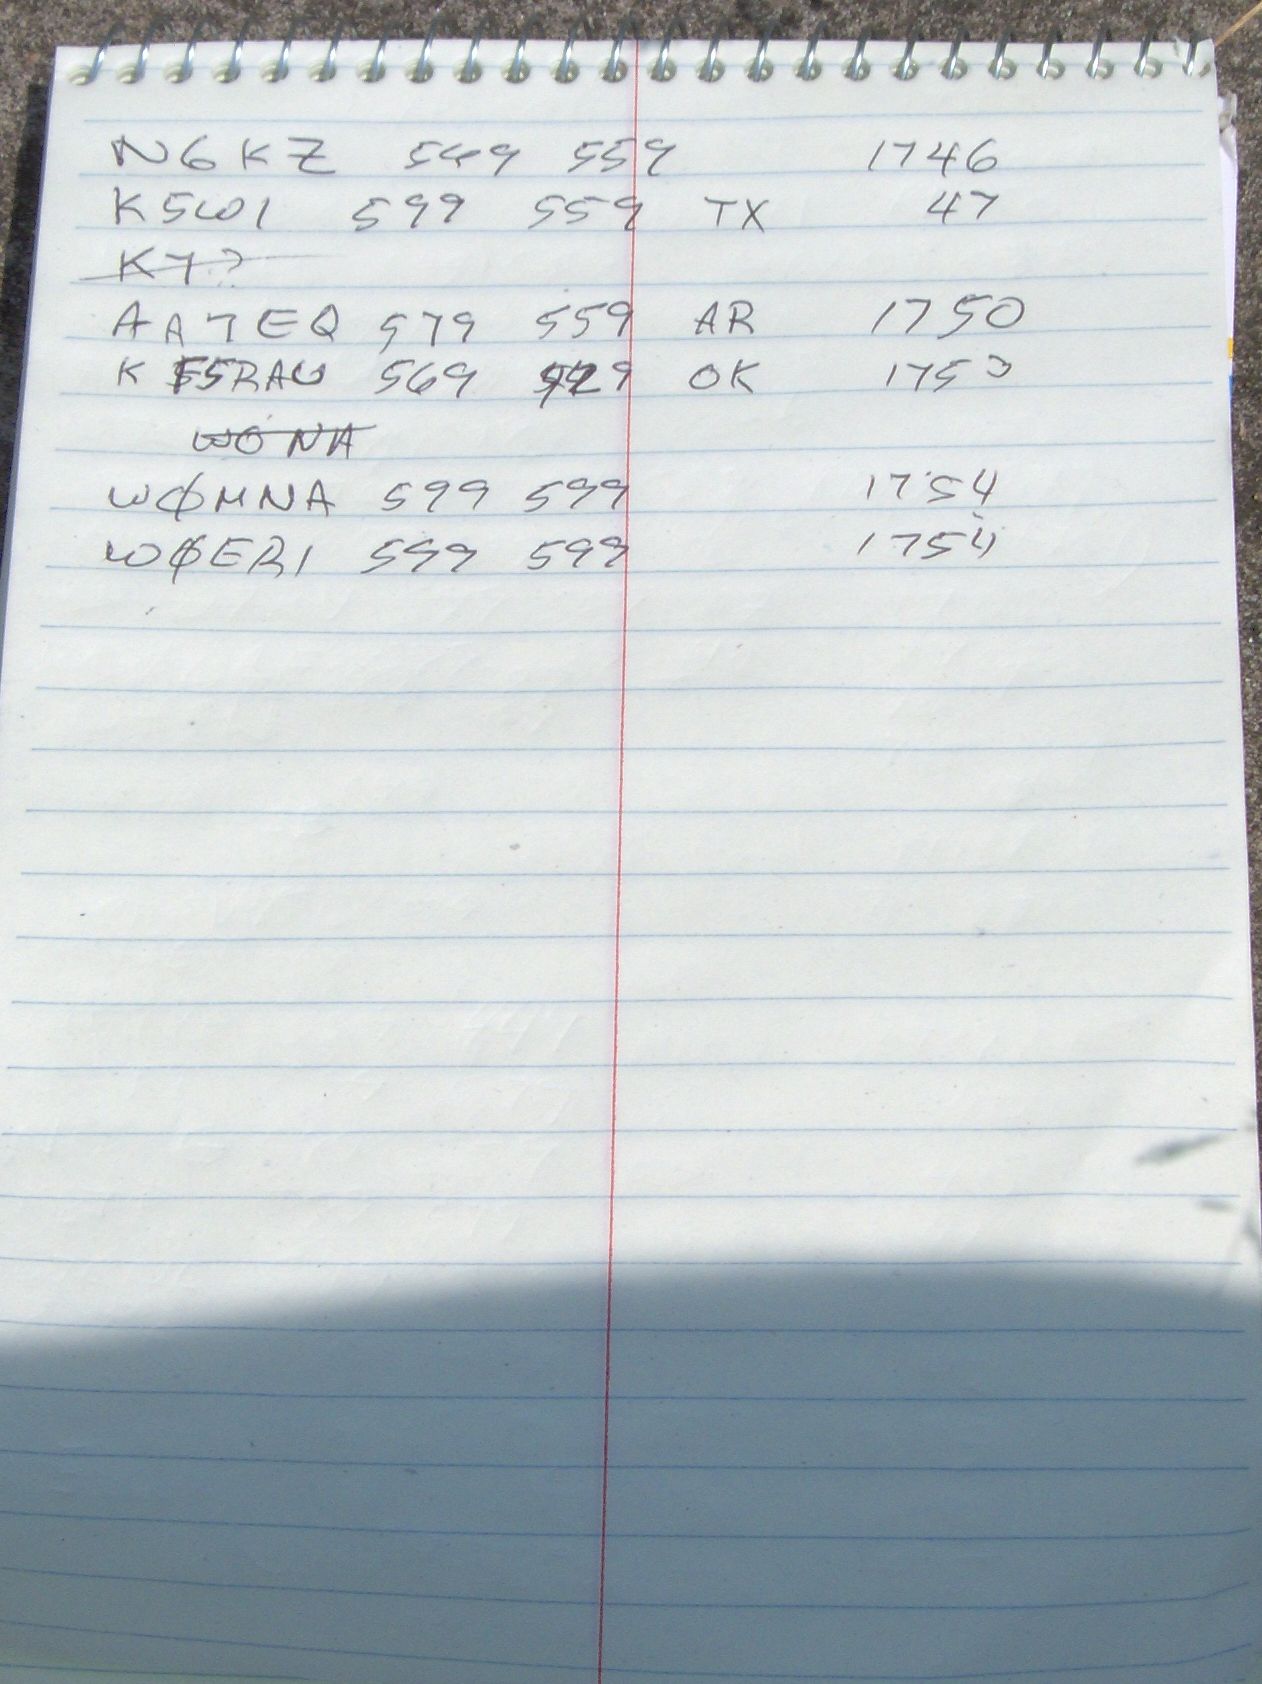 N6KZ 549 559 1746
K5WI 599 559 TX 47
K7?
AA7EQ 579 559 AR 1750
569 OK 1753
WONA
WØMNA 599 599 1754
WØERI 599 599 1754